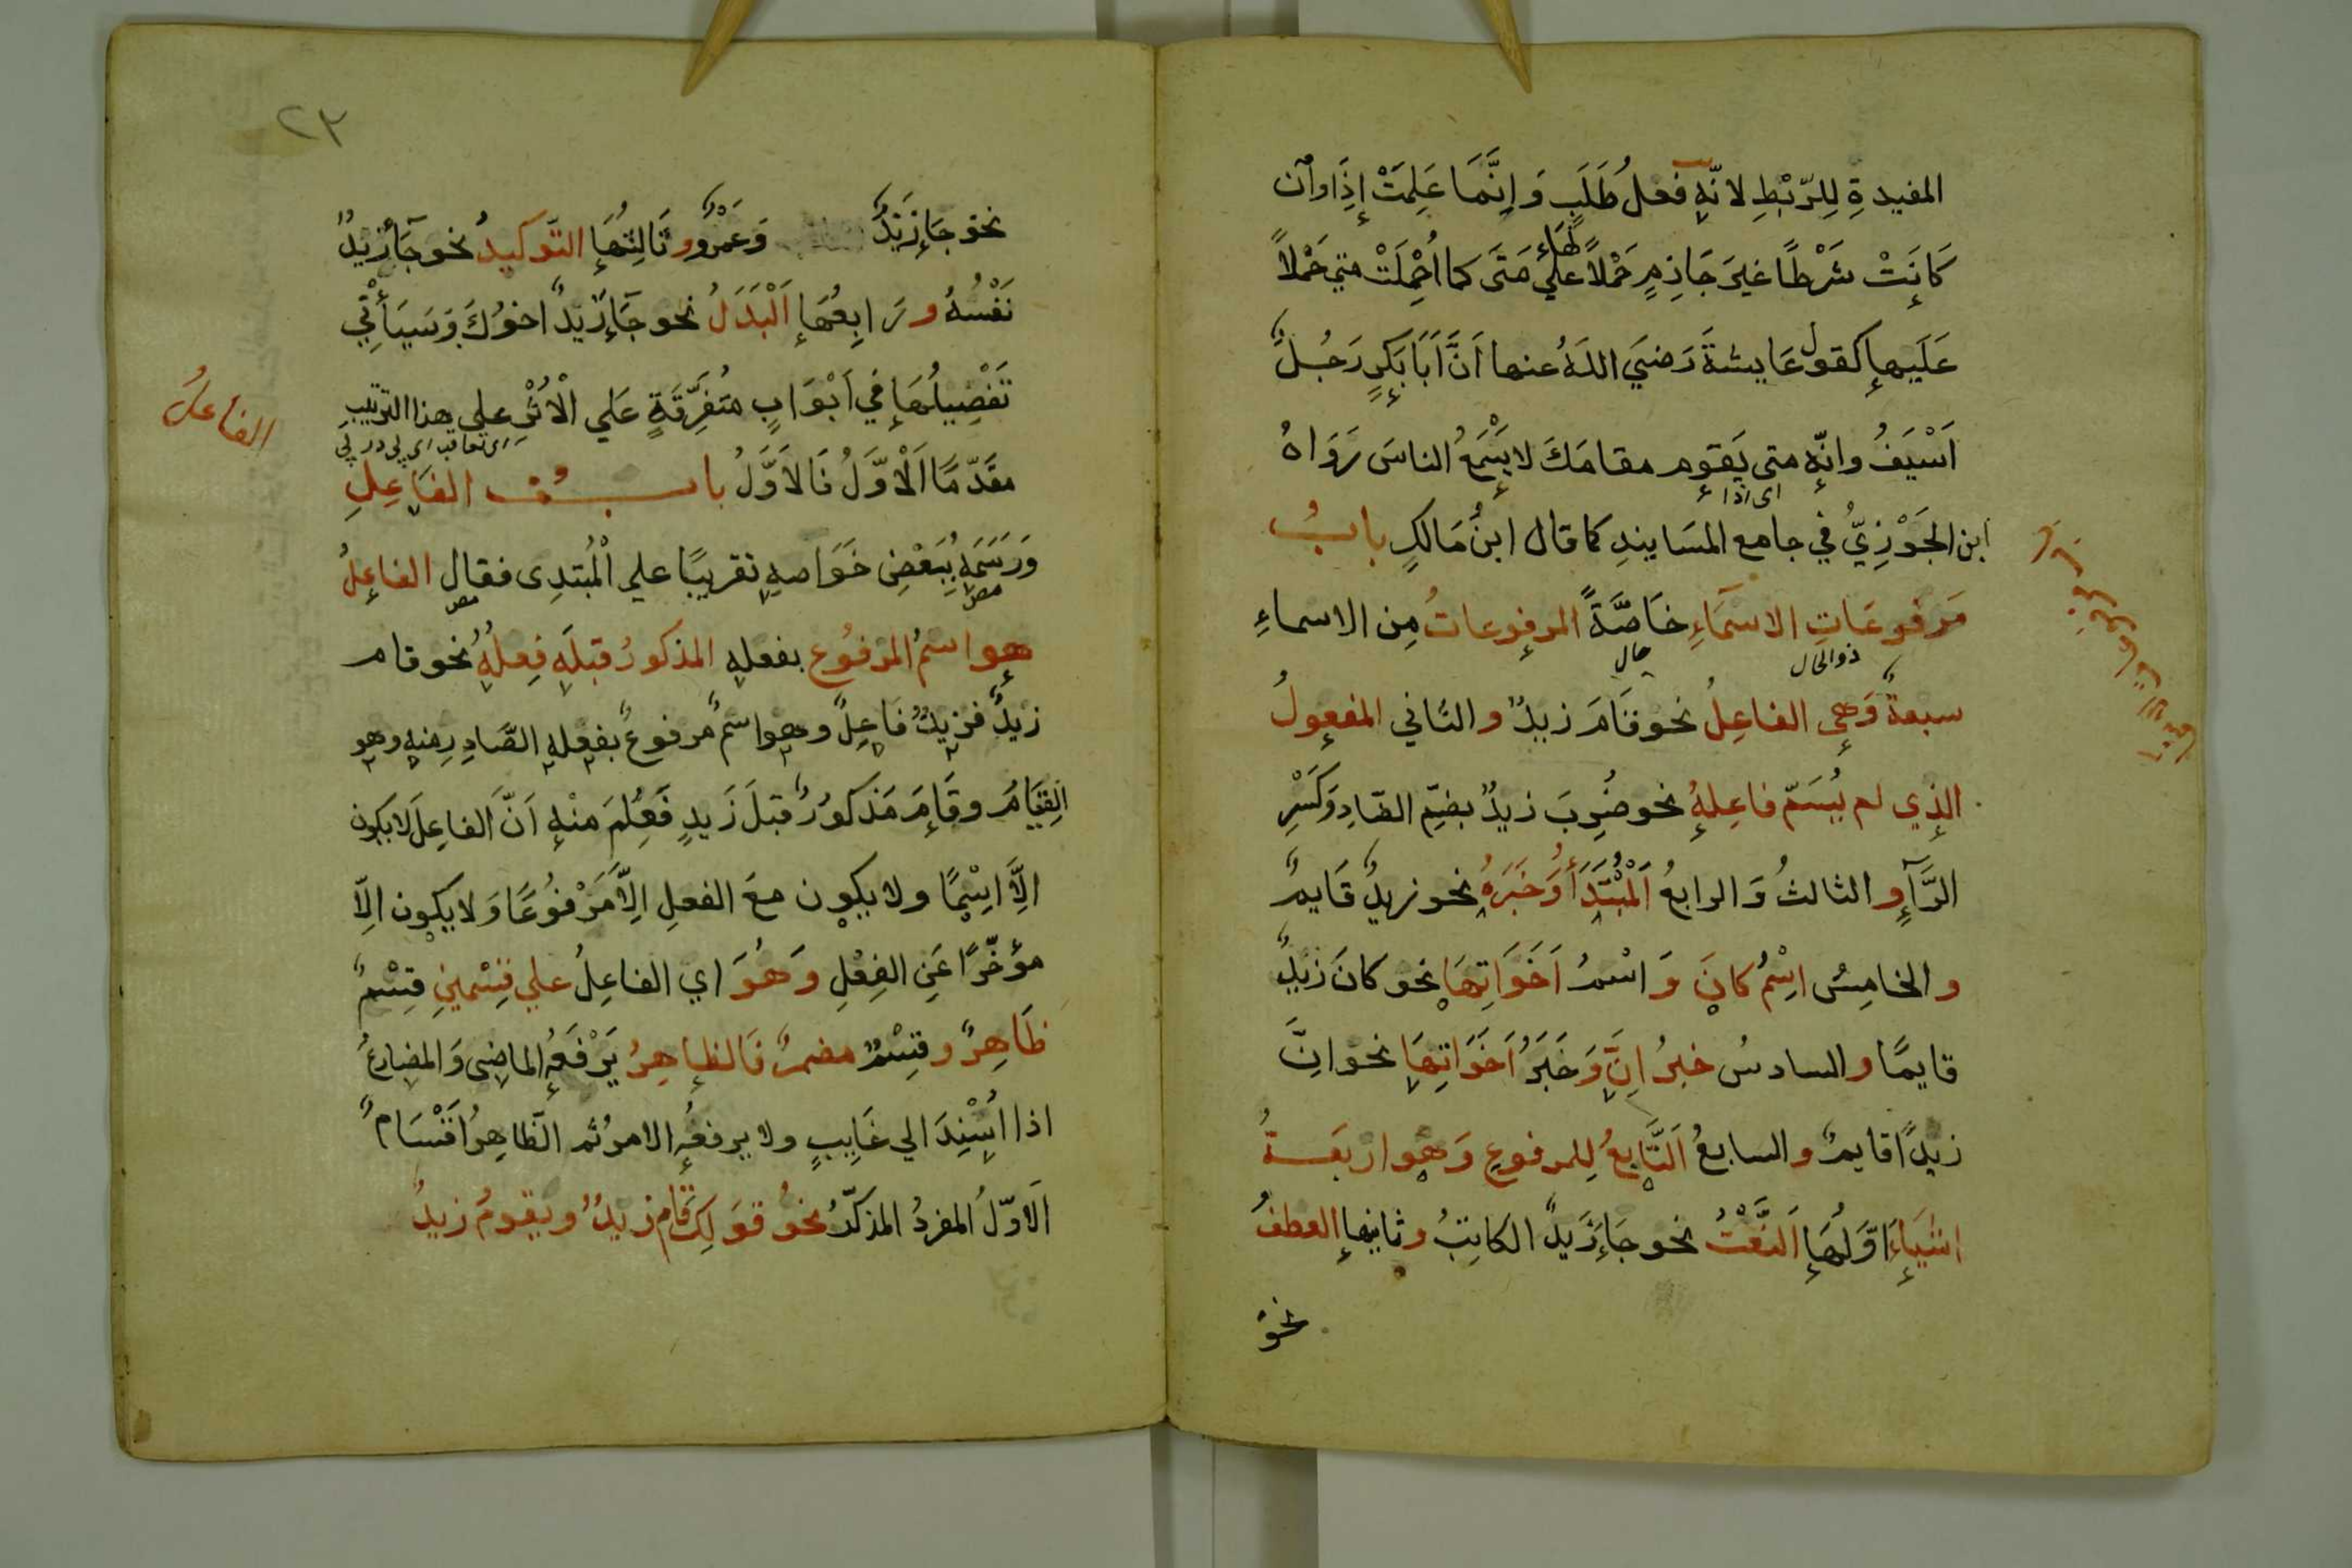 المفيدةِ لِلرّبْطِ لانّه فعلُ طَلَبٍ وَإِنَّمَا عَلِمَتْ إِذَا وان
كَانَتْ شَرْطًا غيرَ جَازِمٍ حَمْلاً لهَا علي مَتَى كما اُحْمِلَتْ متي حَمْلاً
عَلَيها كقول عَايشةَ رَضيَ اللهُ عنها اَنَّ اَبَا بَكرٍ رَجُلٌ
اَسْيَفُ وانّه متى يَقوم مقامَكَ لا يَسْمَعُ الناسَ رَوَاهُ
اى اذا
ابن الجَوْزِيُّ في جامع المسَانيدِ كما قال ابنُ مَالكٍ بابُ
مَرفوعَاتِ الاسمَاءِ خاصَّةً المرفوعاتُ مِن الاسماءِ
ذو الحال
حال
سبعةٌ وَهي الفاعِلُ نحو قَامَ زيدٌ والثاني المفعولُ
الذي لم يُسَمّ فاعِلهُ نحو ضُرِبَ زيدٌ بضمّ الضّادِ وَكَسْرِ
الرَّآءِ والثالثُ وَالرابعُ اَلْمُبْتَدَأُ وَخَبَرَهُ نحو زيدٌ قَايمٌ
والخامِسُ اسْمُ كانَ وَاسْمُ اَخَوَاتِهَا نحو كانَ زيدٌ
قايمًا والسادسُ خبرُ انَّ وَخَبَرُ اَخَوَاتِهَا نحو انَّ
زيدًا قايمٌ والسابعُ اَلتَّابِعُ لِلمرفوعِ وَهو اربَعَةُ
اشيَاءَ اَوَّلُهَا اَلنَّعْتُ نحو جَاءَ زَيدٌ الكاتِبُ وثانيها العطفُ
نحوُ
٢٣
نحو جَاءَ زَيْدٌ وَعَمْرٌو وثَالِثُهَا التّوكيدُ نحو جآءَ زيدٌ
نَفْسُهُ ورَابِعُهَا اَلْبَدَلُ نحو جَآءَ زَيدٌ اخوُكَ وَسَيَأْتِي
تَفْصِيلُهَا فِي اَبْوَابٍ مُتَفَرِّقَةٍ عَلي الْاُثْرِ علي هذا الترتيبِ
اى تعاقب اى پى در پى
الفاعلُ
مقَدّمًا اَلْاَوَّلُ فَالاَوَّلُ بابُ الفَاعِلِ
وَرَسَمَهُ بِبَعْضِ خَوَاصهِ تقريبًا علي الْمُبْتَدِى فقال الفاعِلُ
هو اسْمُ المرفُوع بفعلهِ المذكورُ قبلَه فِعلُهُ نحو قام
زيدٌ فزيدٌ فَاعِلٌ وهو اسمٌ مرفوعٌ بفعلهِ الصَّادِرِ منه وهو
القِيَامُ وقَامَ مَذكورٌ قبلَ زَيدٍ فَعُلِمَ منْهُ اَنَّ الفاعِلَ لا يكون
الاَّ اسْمًا ولا يكون معَ الفعلِ الاَّ مَرْفُوعًا وَلا يكون الاّ
مؤخّرًا عَنِ الفِعْلِ وَهُوَ اي الفاعِلُ علي قِسْمينِ قِسْمٌ
ظَاهِرٌ وقِسْمٌ مضمرٌ فَالظاهِرُ يَرْفَعُهُ الماضِى وَالمضارعُ
اذا اُسْنِدَ الي غَايِبٍ ولا يرفعُه الامرُ ثم الظّاهِرُ اَقْسَامٌ
اَلاوّلُ المفردُ المذكّرُ نحوُ قَولِكَ قَام زيدٌ ويقومُ زيدٌ